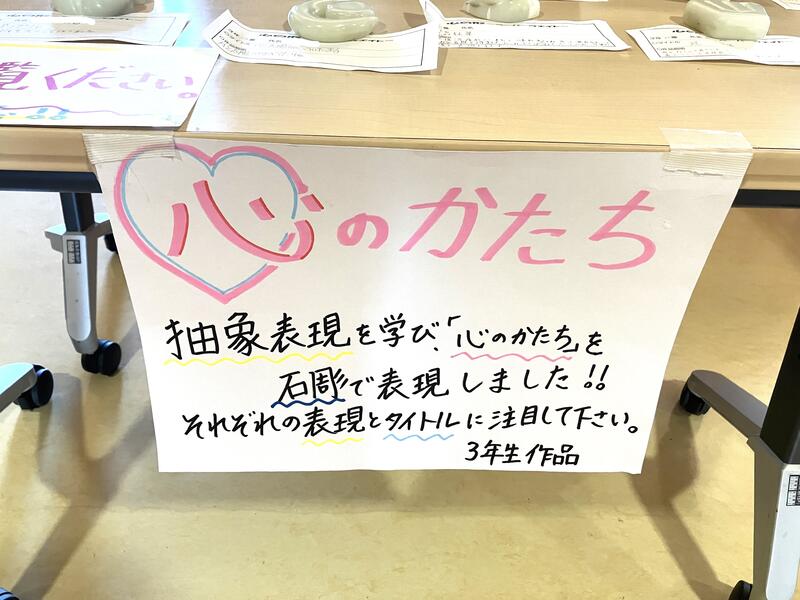 覧ください。
心のかたち
抽象表現を学び、「心のかたち」を
石彫で表現しました!!
それぞれの表現とタイトルに注目して下さい。
3年生作品